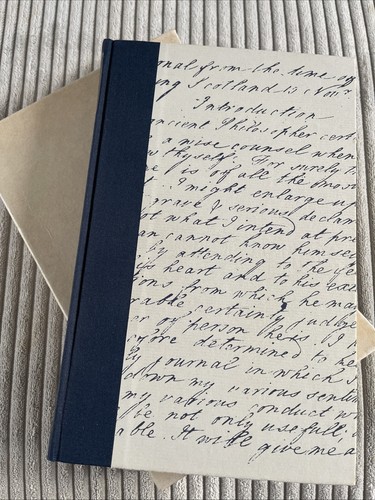 onal from the time of
ng Scotland 15 Nov.r
Introduction
ancient Philosopher cert
a wise counsel when
w thyself. For surely t
e is of all the most
t. I might enlarge up
grave & serious declam
ot what I intend at pre
an cannot know himse
by attending to the fe
is heart and to his ext
ions from which he may
rable certainty judge
er of person he is. I
efore determined to ke
ly journal in which I
down my various senti
my various conduct w
be not only usefull; 
able. It will give me a